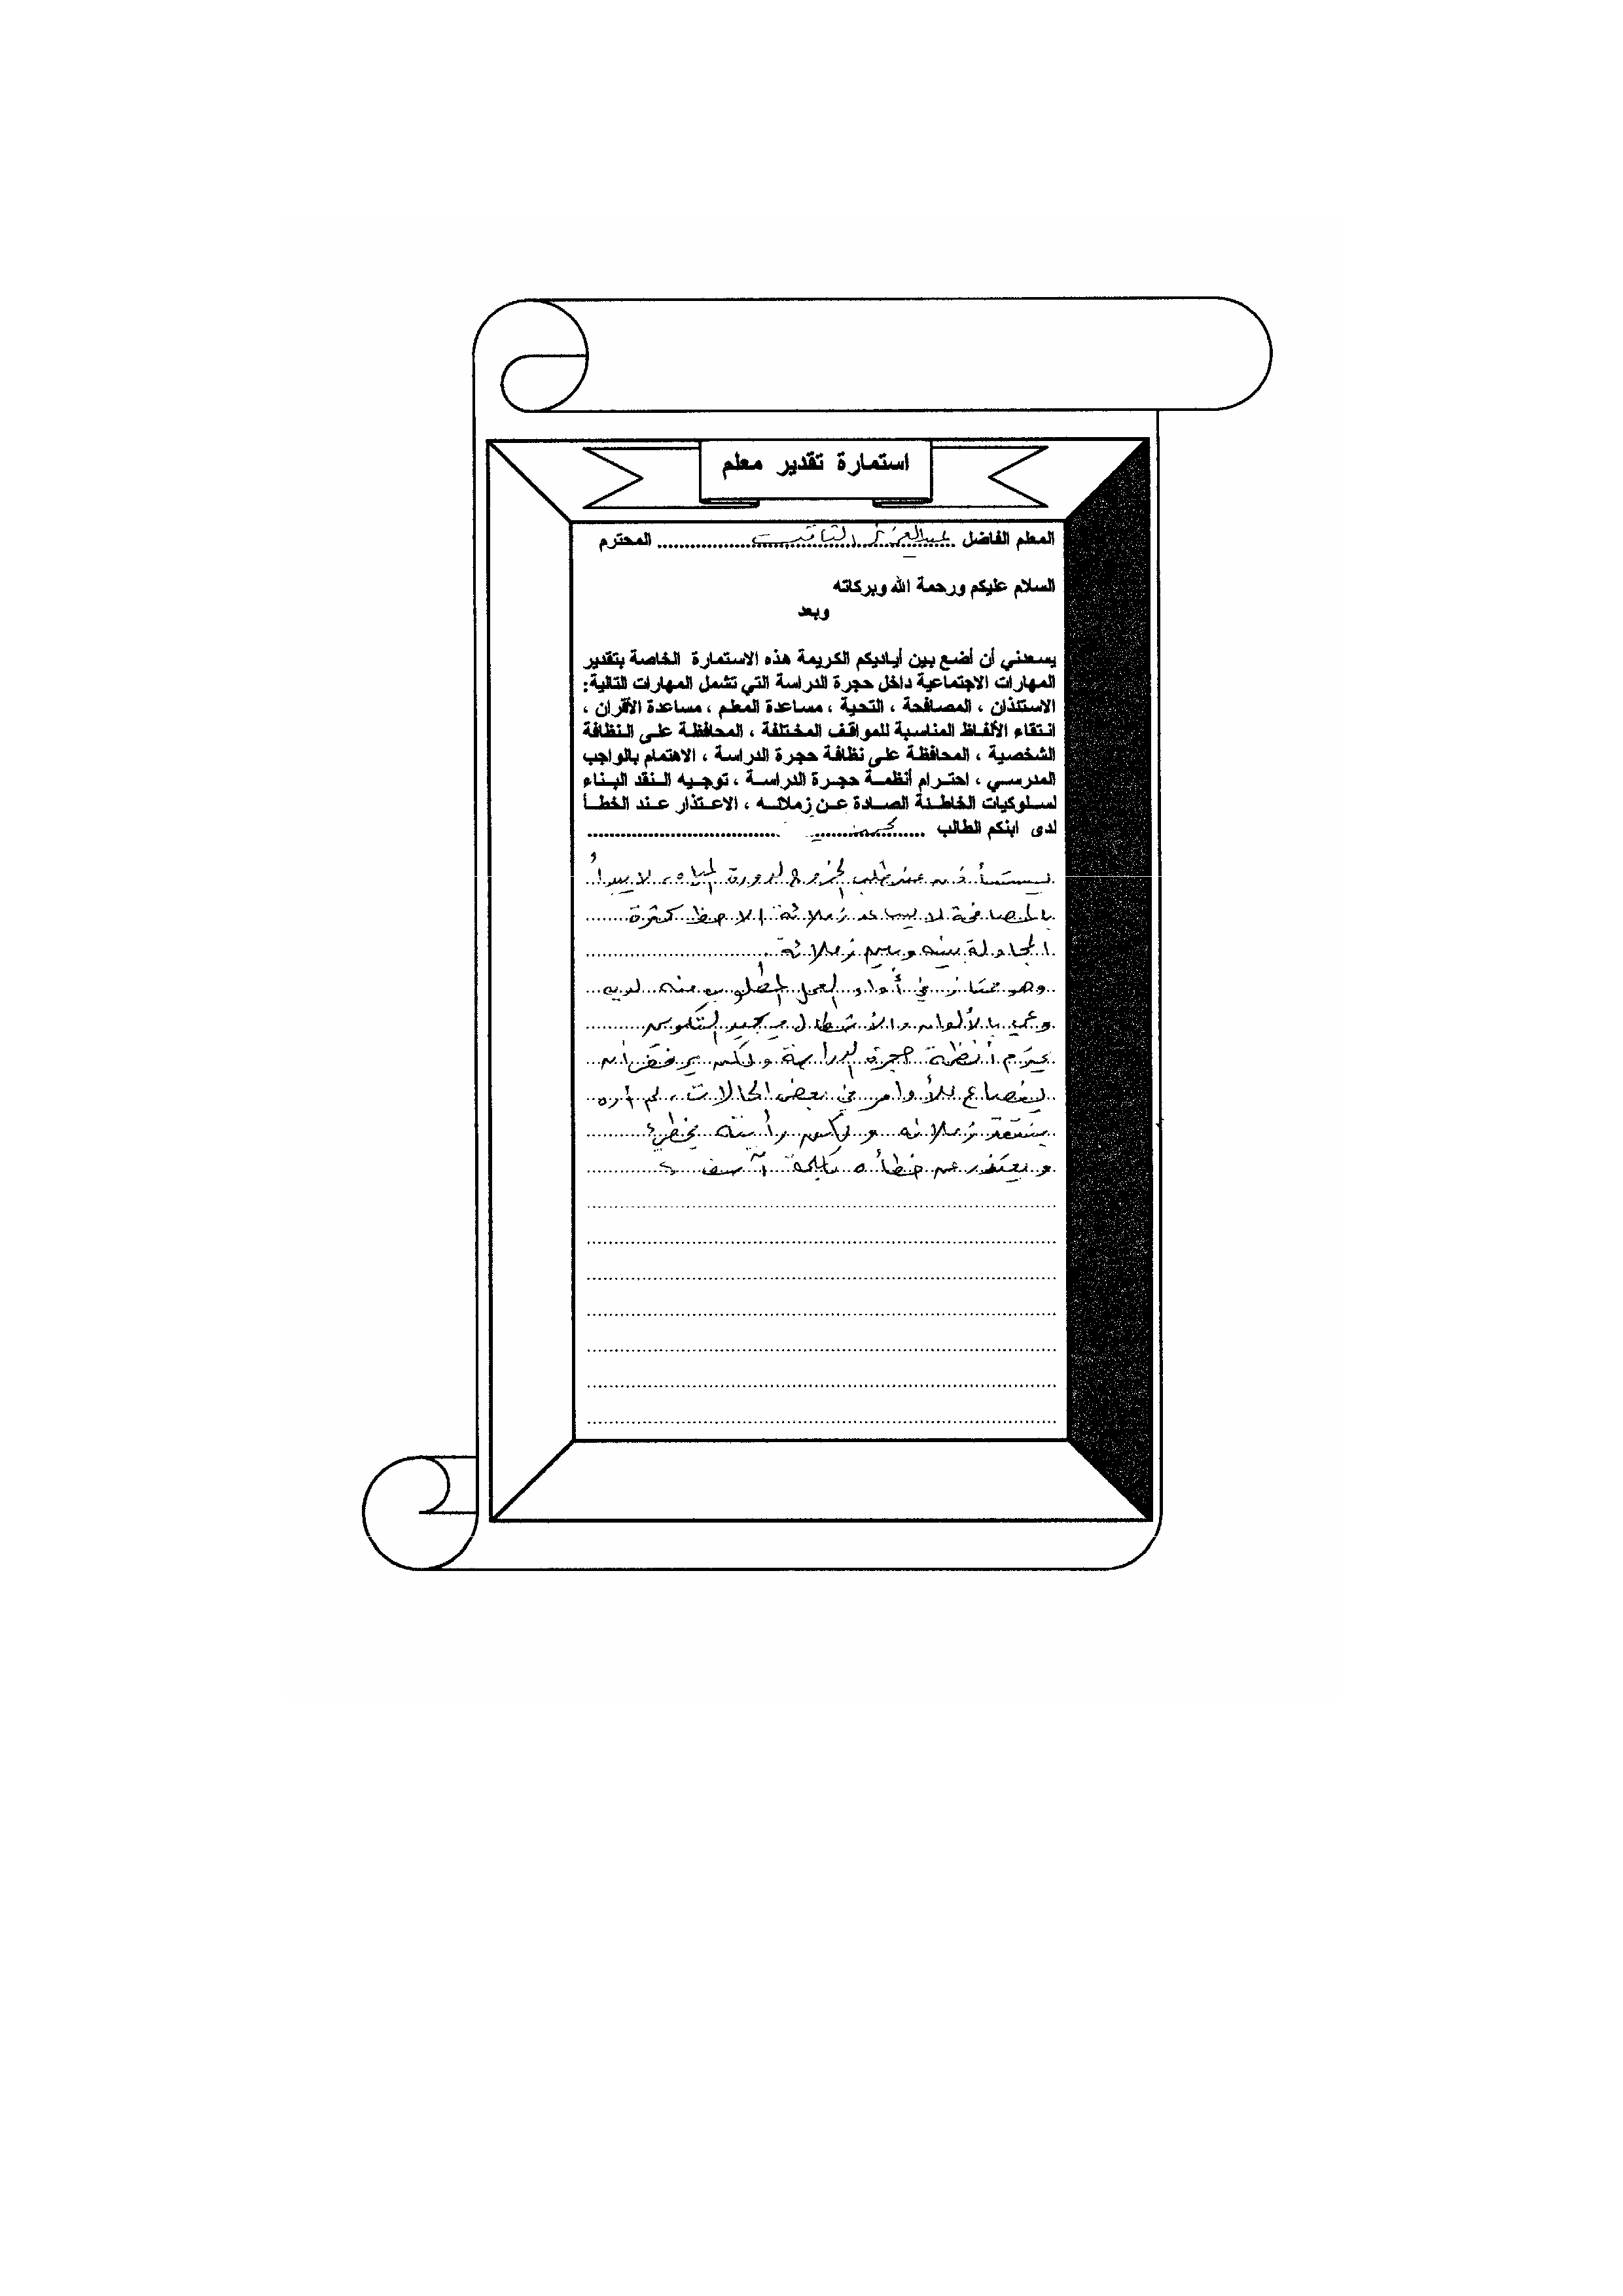 استمارة تقدير معلم
المعلم الفاضل عبدالعزيز الثاقب المحترم
السلام عليكم ورحمة الله وبركاته
وبعد
يسعدني أن أضع بين أياديكم الكريمة هذه الاستمارة الخاصة بتقدير
المهارات الاجتماعية داخل حجرة الدراسة التي تشمل المهارات التالية:
الاستئذان ، المصافحة ، التحية ، مساعدة المعلم ، مساعدة الأقران ،
انتقاء الألفاظ المناسبة للمواقف المختلفة ، المحافظة على النظافة
الشخصية ، المحافظة على نظافة حجرة الدراسة ، الاهتمام بالواجب
المدرسي ، احترام أنظمة حجرة الدراسة ، توجيه النقد البناء
لسلوكيات الخاطئة الصادة عن زملائه ، الاعتذار عند الخطأ
لدى ابنكم الطالب
يستأذن عند طلب الخروج لدورة المياه، لا يبدأ
بالمصافحة لا يساعد زملائة الاحظ كثرة
المجادلة بينه وبين زملائة
وهو ممتاز في أداء العمل المطلوب منه لديه
وعي بالألوان والأشكال ويجيد التلوين
يحترم أنظمة حجرة الدراسة ولكن يرفض أن
ينصاع للأوامر في بعض الحالات، لم أره
ينتقد زملائه ولكن رأيته يخطئ
ويعتذر عن خطأه بكلمة آسف